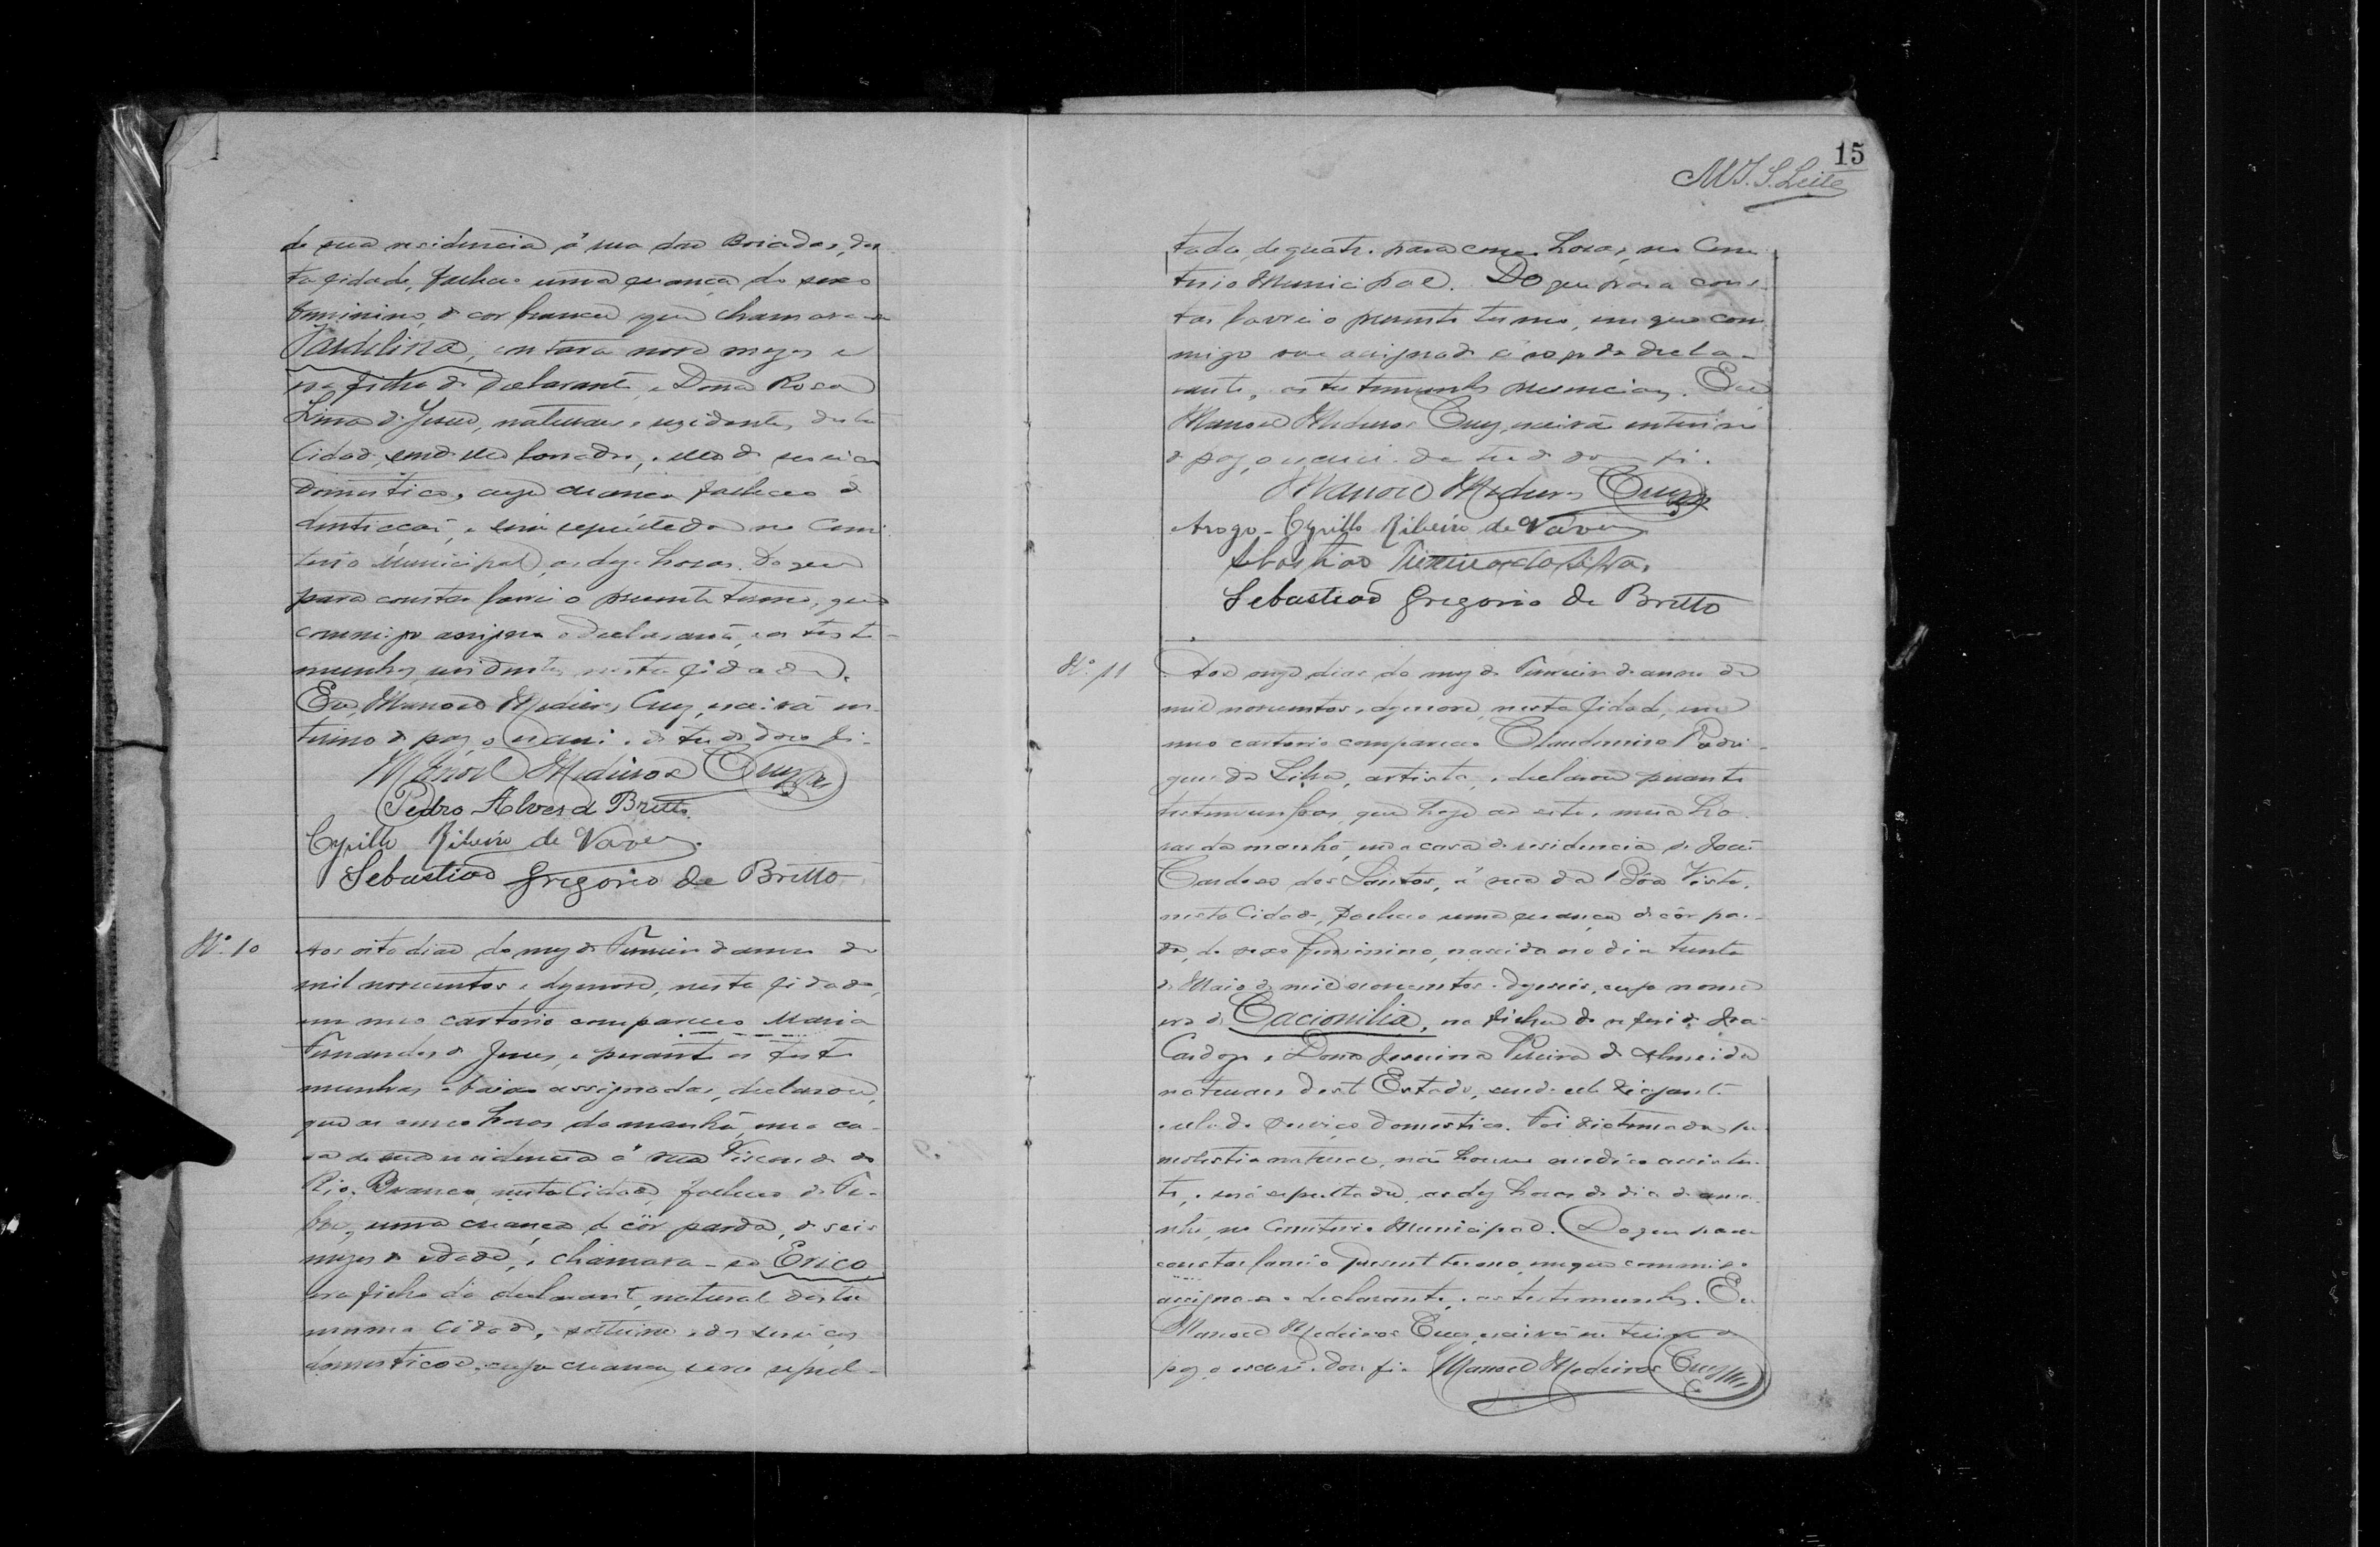 de sua residencia á rua dos Boiadas, des
ta cidade, falleceu uma creança do sexo
feminino, de cor branca que chamava-se
Jardelina, contava nove mezes e
era filha do declarante, e Dona Rosa
Lima de Jesus, naturaes e rezidentes desta
Cidade, sendo elle lavrador, e ella de serviços
domesticos, cuja creança falleceu de
dentição, e será sepultada no Cemi
terio Municipal, as dez horas. Do que
para constar lavrei o presente termo, que
commigo assigna o declarante, e as teste-
munhas rezidentes nesta cidade.
Eu, Manoel Medeiros Cruz, escrivão in
terino de paz, o escrevi e de tudo dou fé.
Manoel Medeiros Cruz
Pedro Alves de Britto.
Cyrillo Ribeiro de Novaes.
Sebastião Gregorio de Britto
Nº. 10
Aos oito dias do mez de Fevereiro do anno de
mil novecentos e dezenove, nesta cidade,
em meo cartorio compareceo Maria
Fernandes de Jesus, e perante as teste
munhas abaixo assignadas, declarou,
que as cinco horas da manhã, em a ca-
sa de sua residencia á rua Visconde do
Rio Branco, nesta Cidade, falleceo de Fe-
bre, uma creança de côr parda, de seis
mezes de edade, e chamava-se Erico
era filho da declarante, natural desta
mesma Cidade, solteira e dos serviços
domesticos, cuja creança sera sepul-
15
M. J. S. Leite
tada, de quatro para cinco horas, no Cemi
terio Municipal. Do que para cons-
tar lavrei o presente termo, em que com
migo vae assignado á rogo da decla-
rante, as testemunhas presenciaes. Eu
Manoel Medeiros Cruz, escrivão interino
de paz, o escrevi. de tudo dou fé.
Manoel Medeiros Cruz
Arogo - Cyrillo Ribeiro de Novaes
Sebastião Ferreira da Silva.
Sebastião Gregorio de Britto
Nº. 11
Aos onze dias do mez de Fevereiro do anno de
mil novecentos e dezenove, nesta Cidade, em
meo cartorio compareceo Claudemiro Rodri-
gues da Silva, artista, e declarou perante
testemunhas, que hoje as sete e meia ho-
ras da manhã, em a casa de residencia de José
Cardoso dos Santos, á rua da Bôa Vista,
nesta Cidade, falleceo uma creança de côr par-
da, do sexo feminino, nascida no dia trinta
de Maio de mil novecentos e dezeseis, cujo nome
era de Cacionilia, era filha do referido José
Cardozo e Dona Jesuina Pereira de Almeida
naturaes deste Estado, sendo elle viajante
e ella do serviço domestico. Foi victimada por
molestia natural, não houve medico assisten-
te, e será sepultada as dez horas do dia de ama
nhã, no Cemiterio Municipal. Do que para
constar lavrei o presente termo, em que commigo
assigna-se o declarante e as testemunhas. Eu
Manoel Medeiros Cruz, escrivão interino de
paz, o escrevi. dou fé. Manoel Medeiros Cruz